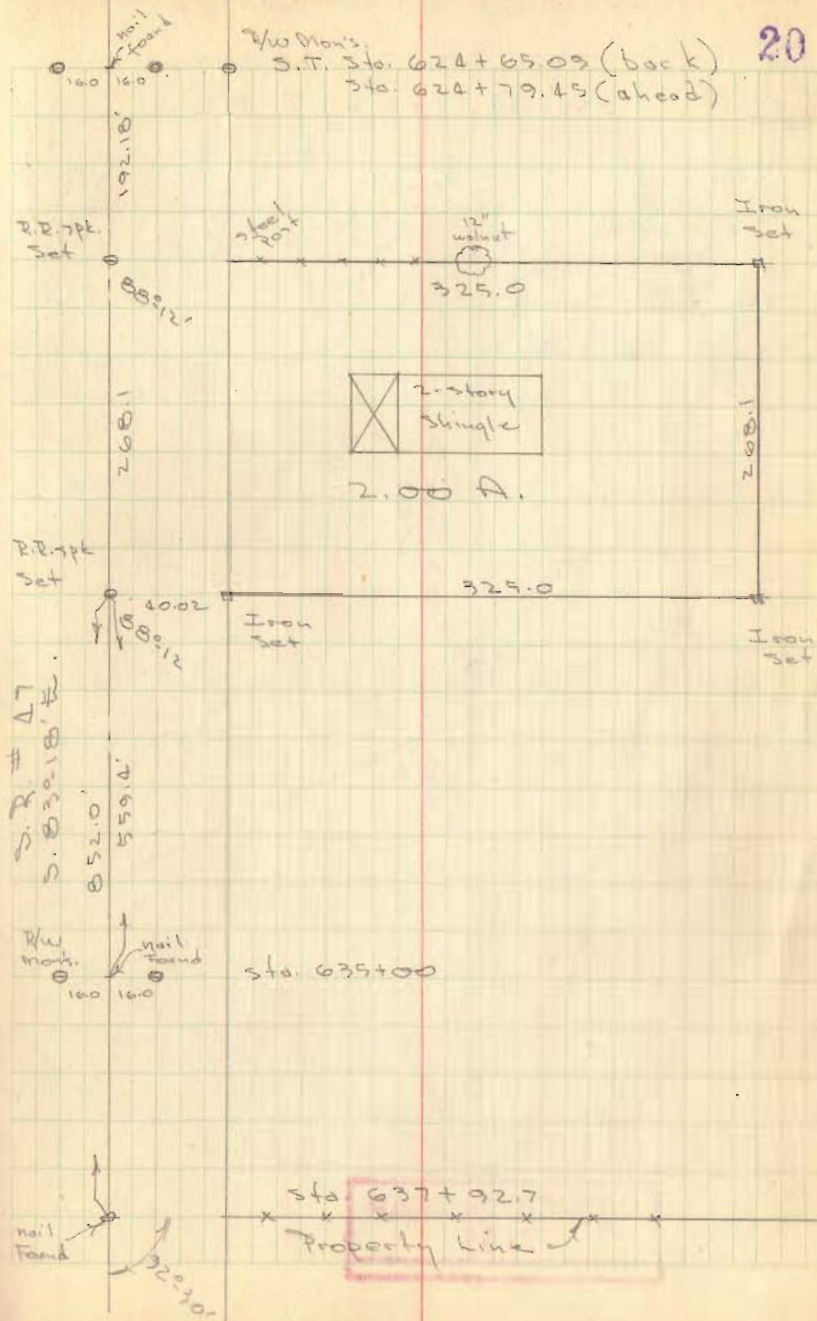 20
nail
found
R/W Mon's.
S.T. Sta. 624+65.05 (back)
Sta. 624+79.45 (ahead)
16.0 16.0
192.18'
R.R. spk.
Set
steel
post
12"
walnut
Iron
Set
325.0
88°-12'
268.1
2-story
Shingle
268.1
2.00 A.
R.R. spk
Set
40.02
325.0
Iron
Set
Iron
Set
88°-12
S.R. # 47
S. 83°-18' E.
852.0'
559.4'
R/W
Mon's.
nail
Found
sta. 635+00
16.0 16.0
sta. 637+92.7
nail
Found
Property Line
92°-30'